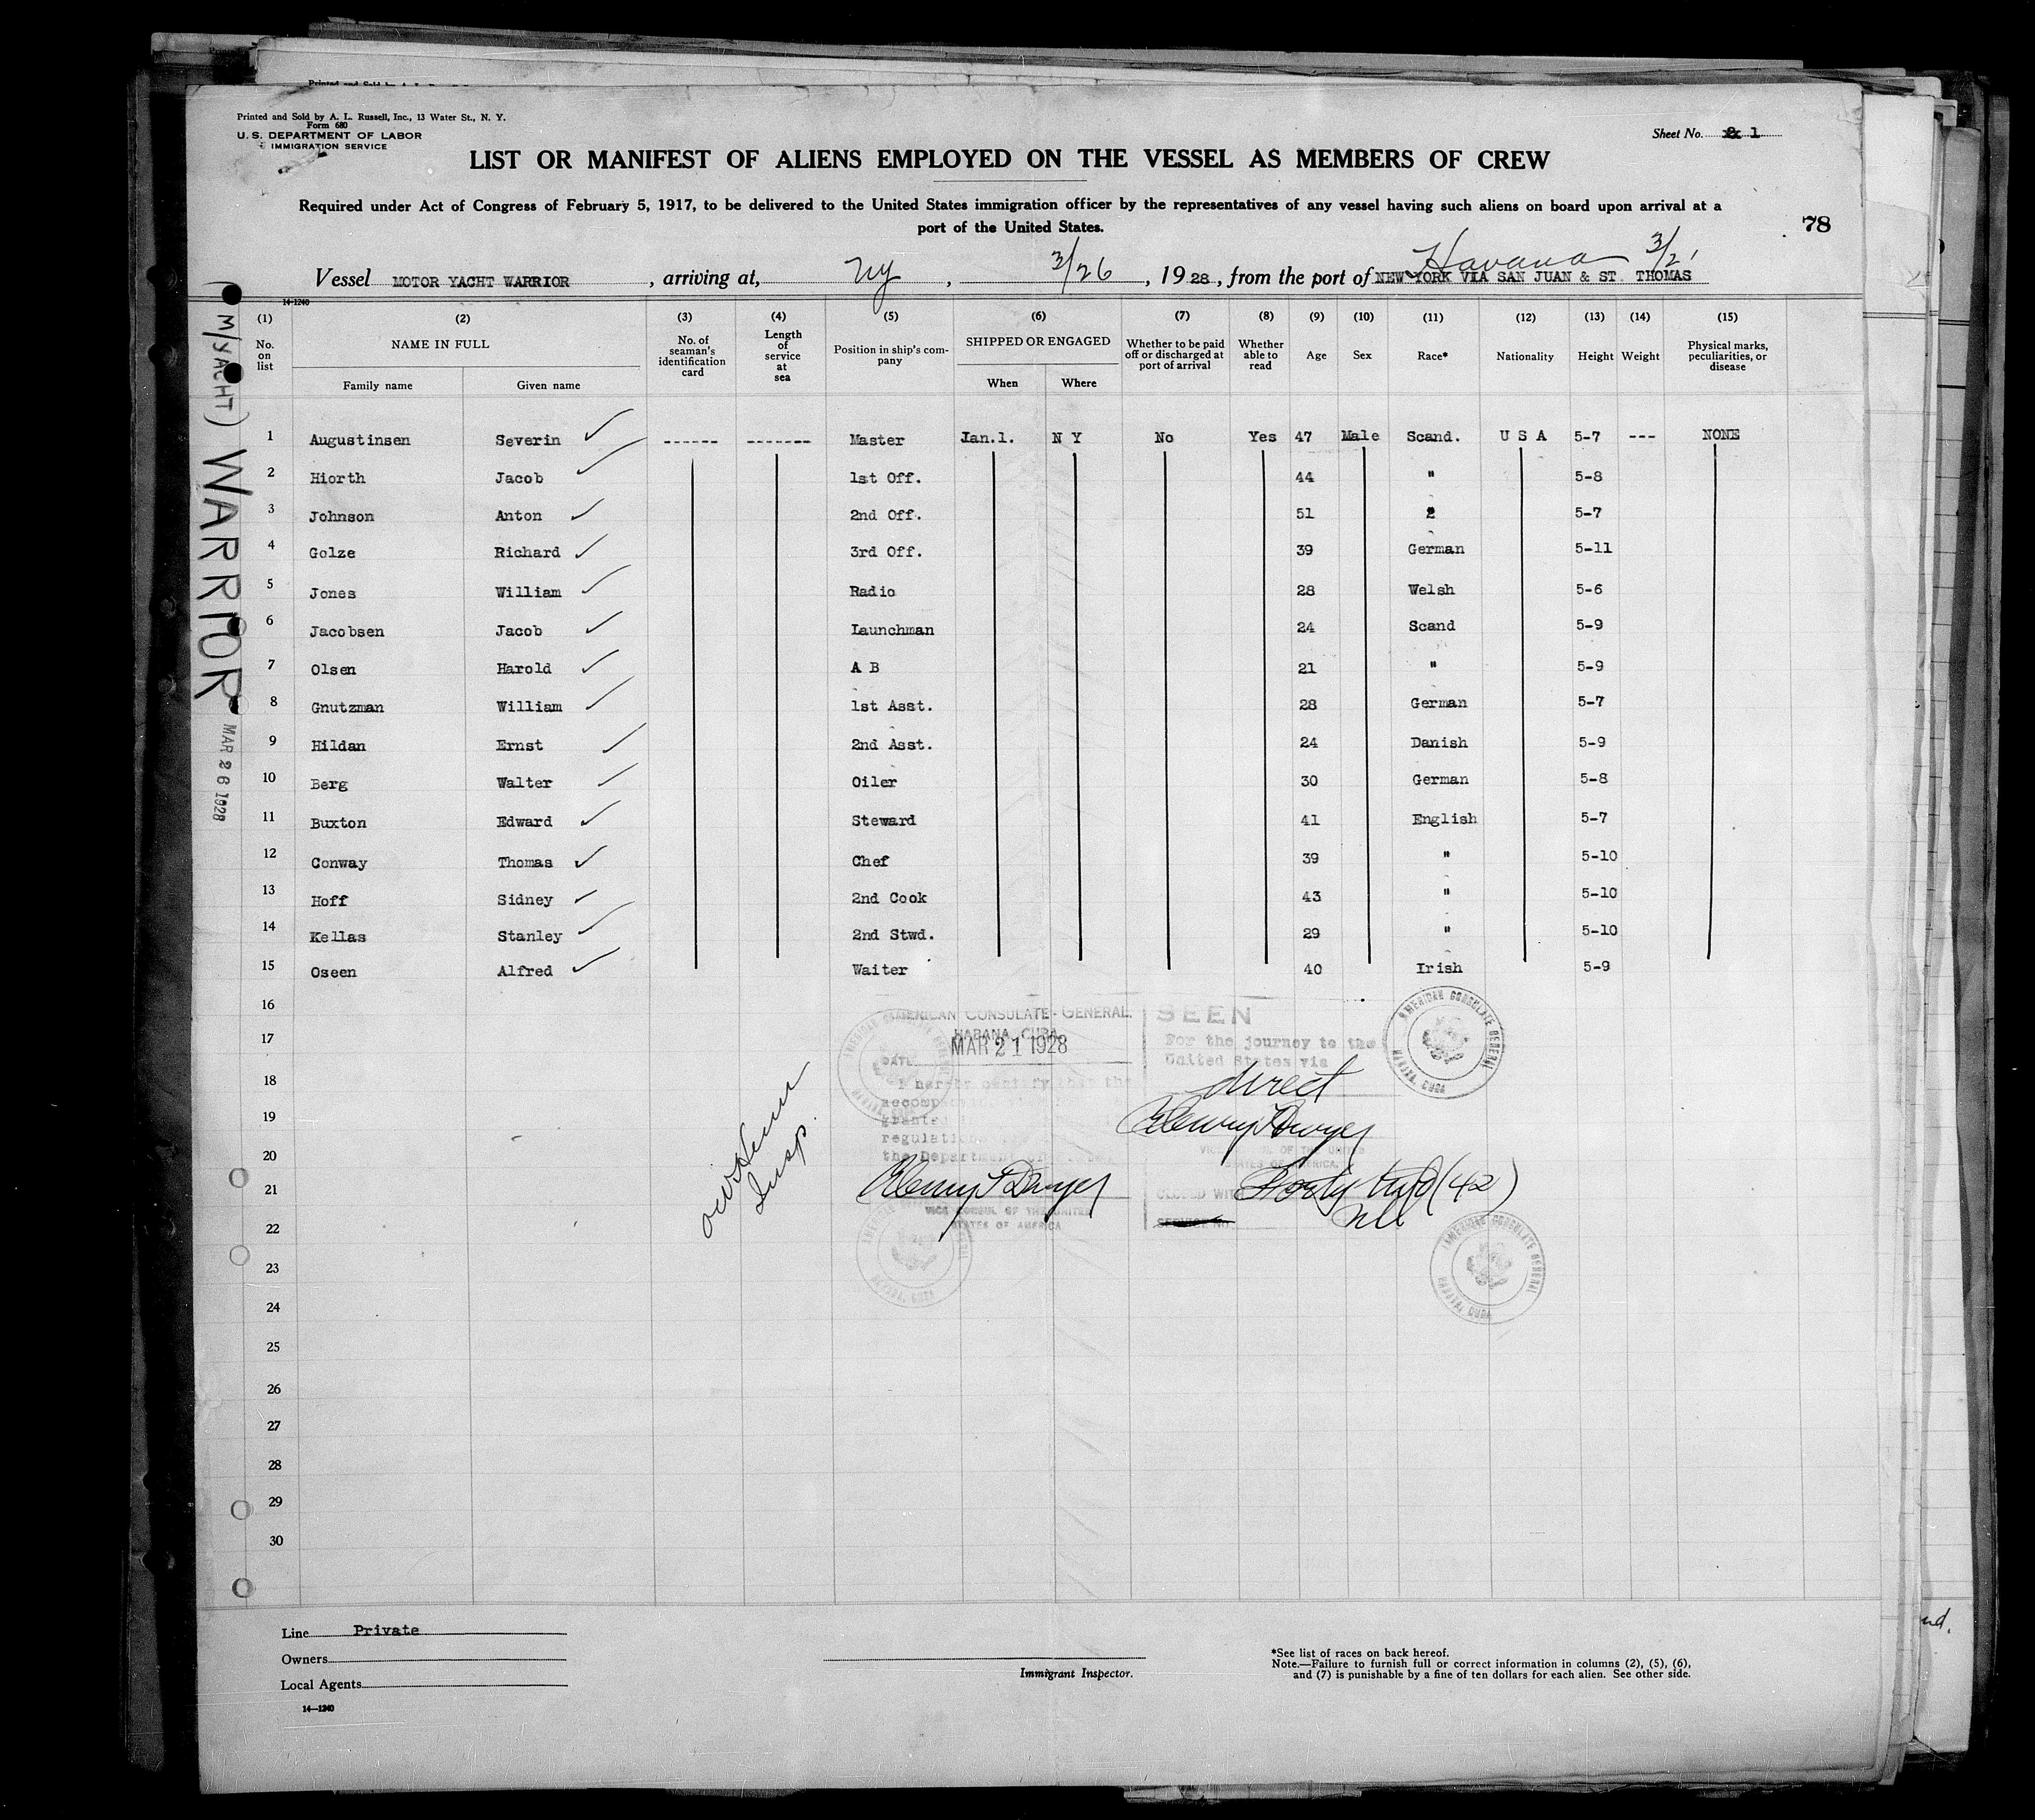 Printed and Sold by A. L. Russell, Inc., 13 Water St., N. Y.
Form 680
U. S. DEPARTMENT OF LABOR
IMMIGRATION SERVICE
Sheet No. 1
LIST OR MANIFEST OF ALIENS EMPLOYED ON THE VESSEL AS MEMBERS OF CREW
Required under Act of Congress of February 5, 1917, to be delivered to the United States immigration officer by the representatives of any vessel having such aliens on board upon arrival at a
port of the United States.
78
Havana 3/21
Vessel MOTOR YACHT WARRIOR, arriving at, NY, 3/26, 1928, from the port of NEW YORK VIA SAN JUAN & ST. THOMAS
14-1240
(1) (2) (3) (4) (5) (6) (7) (8) (9) (10) (11) (12) (13) (14) (15)
No. on list NAME IN FULL Family name Given name No. of seaman's identification card Length of service at sea Position in ship's company SHIPPED OR ENGAGED When Where Whether to be paid off or discharged at port of arrival Whether able to read Age Sex Race* Nationality Height Weight Physical marks, peculiarities, or disease
1 Augustinsen Severin ------ ------- Master Jan.1. N Y No Yes 47 Male Scand. U S A 5-7 --- NONE
2 Hiorth Jacob 1st Off. 44 " 5-8
3 Johnson Anton 2nd Off. 51 " 5-7
4 Golze Richard 3rd Off. 39 German 5-11
5 Jones William Radio 28 Welsh 5-6
6 Jacobsen Jacob Launchman 24 Scand 5-9
7 Olsen Harold A B 21 " 5-9
8 Gnutzman William 1st Asst. 28 German 5-7
9 Hildan Ernst 2nd Asst. 24 Danish 5-9
10 Berg Walter Oiler 30 German 5-8
11 Buxton Edward Steward 41 English 5-7
12 Conway Thomas Chef 39 " 5-10
13 Hoff Sidney 2nd Cook 43 " 5-10
14 Kellas Stanley 2nd Stwd. 29 " 5-10
15 Oseen Alfred Waiter 40 Irish 5-9
16
17
18
19
20
21
22
23
24
25
26
27
28
29
30
(M/YACHT) WARRIOR
MAR 26 1928
AMERICAN CONSULATE-GENERAL.
HABANA, CUBA
DATE MAR 21 1928
I hereby certify that the
regulations
the Department of
Henry T Dwyer
VICE CONSUL OF THE UNITED
STATES OF AMERICA
SEEN
For the journey to the
United States via
direct
Henry T Dwyer
VICE CONSUL OF THE UNITED
STATES OF AMERICA.
CLOSED WITH Forty two (42)
SERVICE NO.
AMERICAN CONSULATE GENERAL
HABANA, CUBA
AMERICAN CONSULATE GENERAL
HABANA, CUBA
AMERICAN CONSULATE GENERAL
HABANA, CUBA
AMERICAN CONSULATE GENERAL
HABANA, CUBA
Insp.
Line Private
Owners
Local Agents
14-1240
Immigrant Inspector.
*See list of races on back hereof.
Note.—Failure to furnish full or correct information in columns (2), (5), (6),
and (7) is punishable by a fine of ten dollars for each alien. See other side.